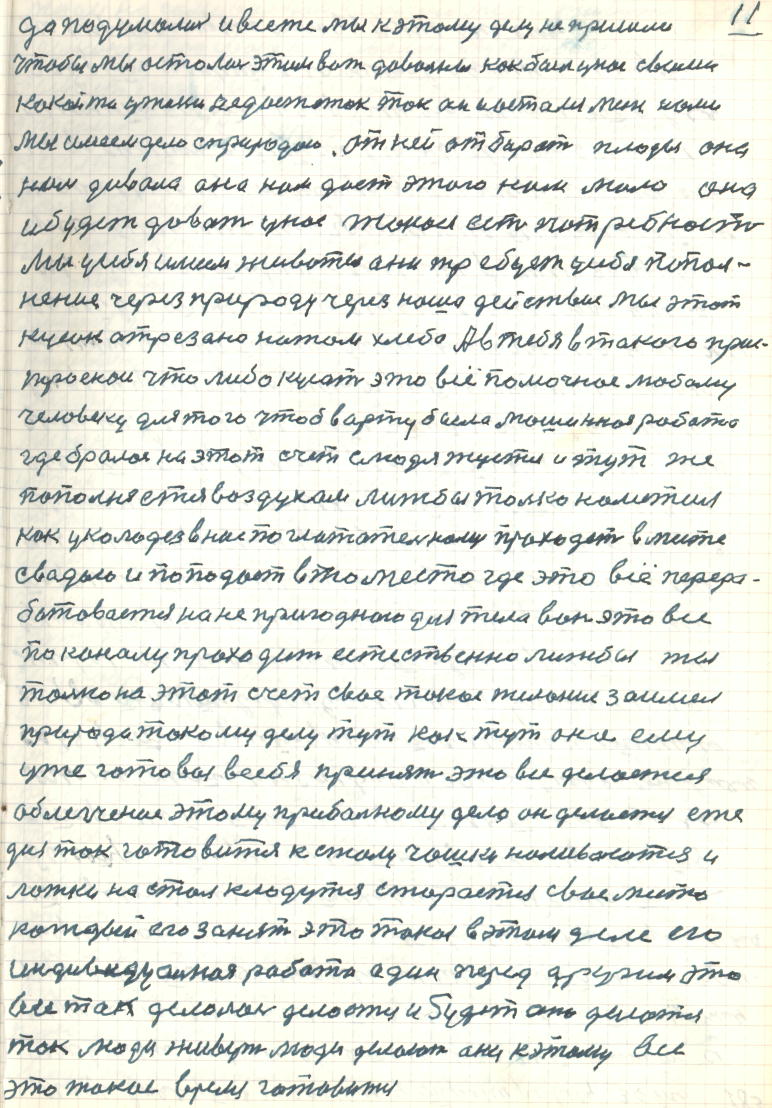 11
да подумали и всеже мы к этому делу не пришли
чтобы мы остолис этим вот доволны как был у нас своими
какойто у жизни недостоток так он и осталси меж нами
мы имеем дело с природою. от ней отбират плоды она
нам давала она нам даст этого нам мало она
и будет дават у нас такои ест потребности
мы у себя имеем животы ани требует у себя попол-
нение через природу через наша действие мы этот
кусок отрезано ножом хлеба
что либо кусат это всё помочное любому
человеку для того чтоб в рту была машинная работа
где бралос на этот счет с людя и тут же
пополняется воздухам лижбы толко наметил
как у колодез в нас по глотателному проходит в месте
с вадою и поподает в то место где это всё перера-
ботовается на не пригодного для тела вон это все
по каналу проходит естественно лижбы ты
толко на этот счет свое такое желание заимел
природа такому делу тут как тут она ему
уже готова всебя принят это все делается
облегчение этому делу он делается еже
дня так готовится к столу чашки наливаются и
ложки на стол кладутся старается свае место
каждый его занят это такая в этом деле его
индивидуалная работа один перед другим это
все так делалос делается и будет она делатся
так люди живут люди делают они к этому все
это такое время готовится